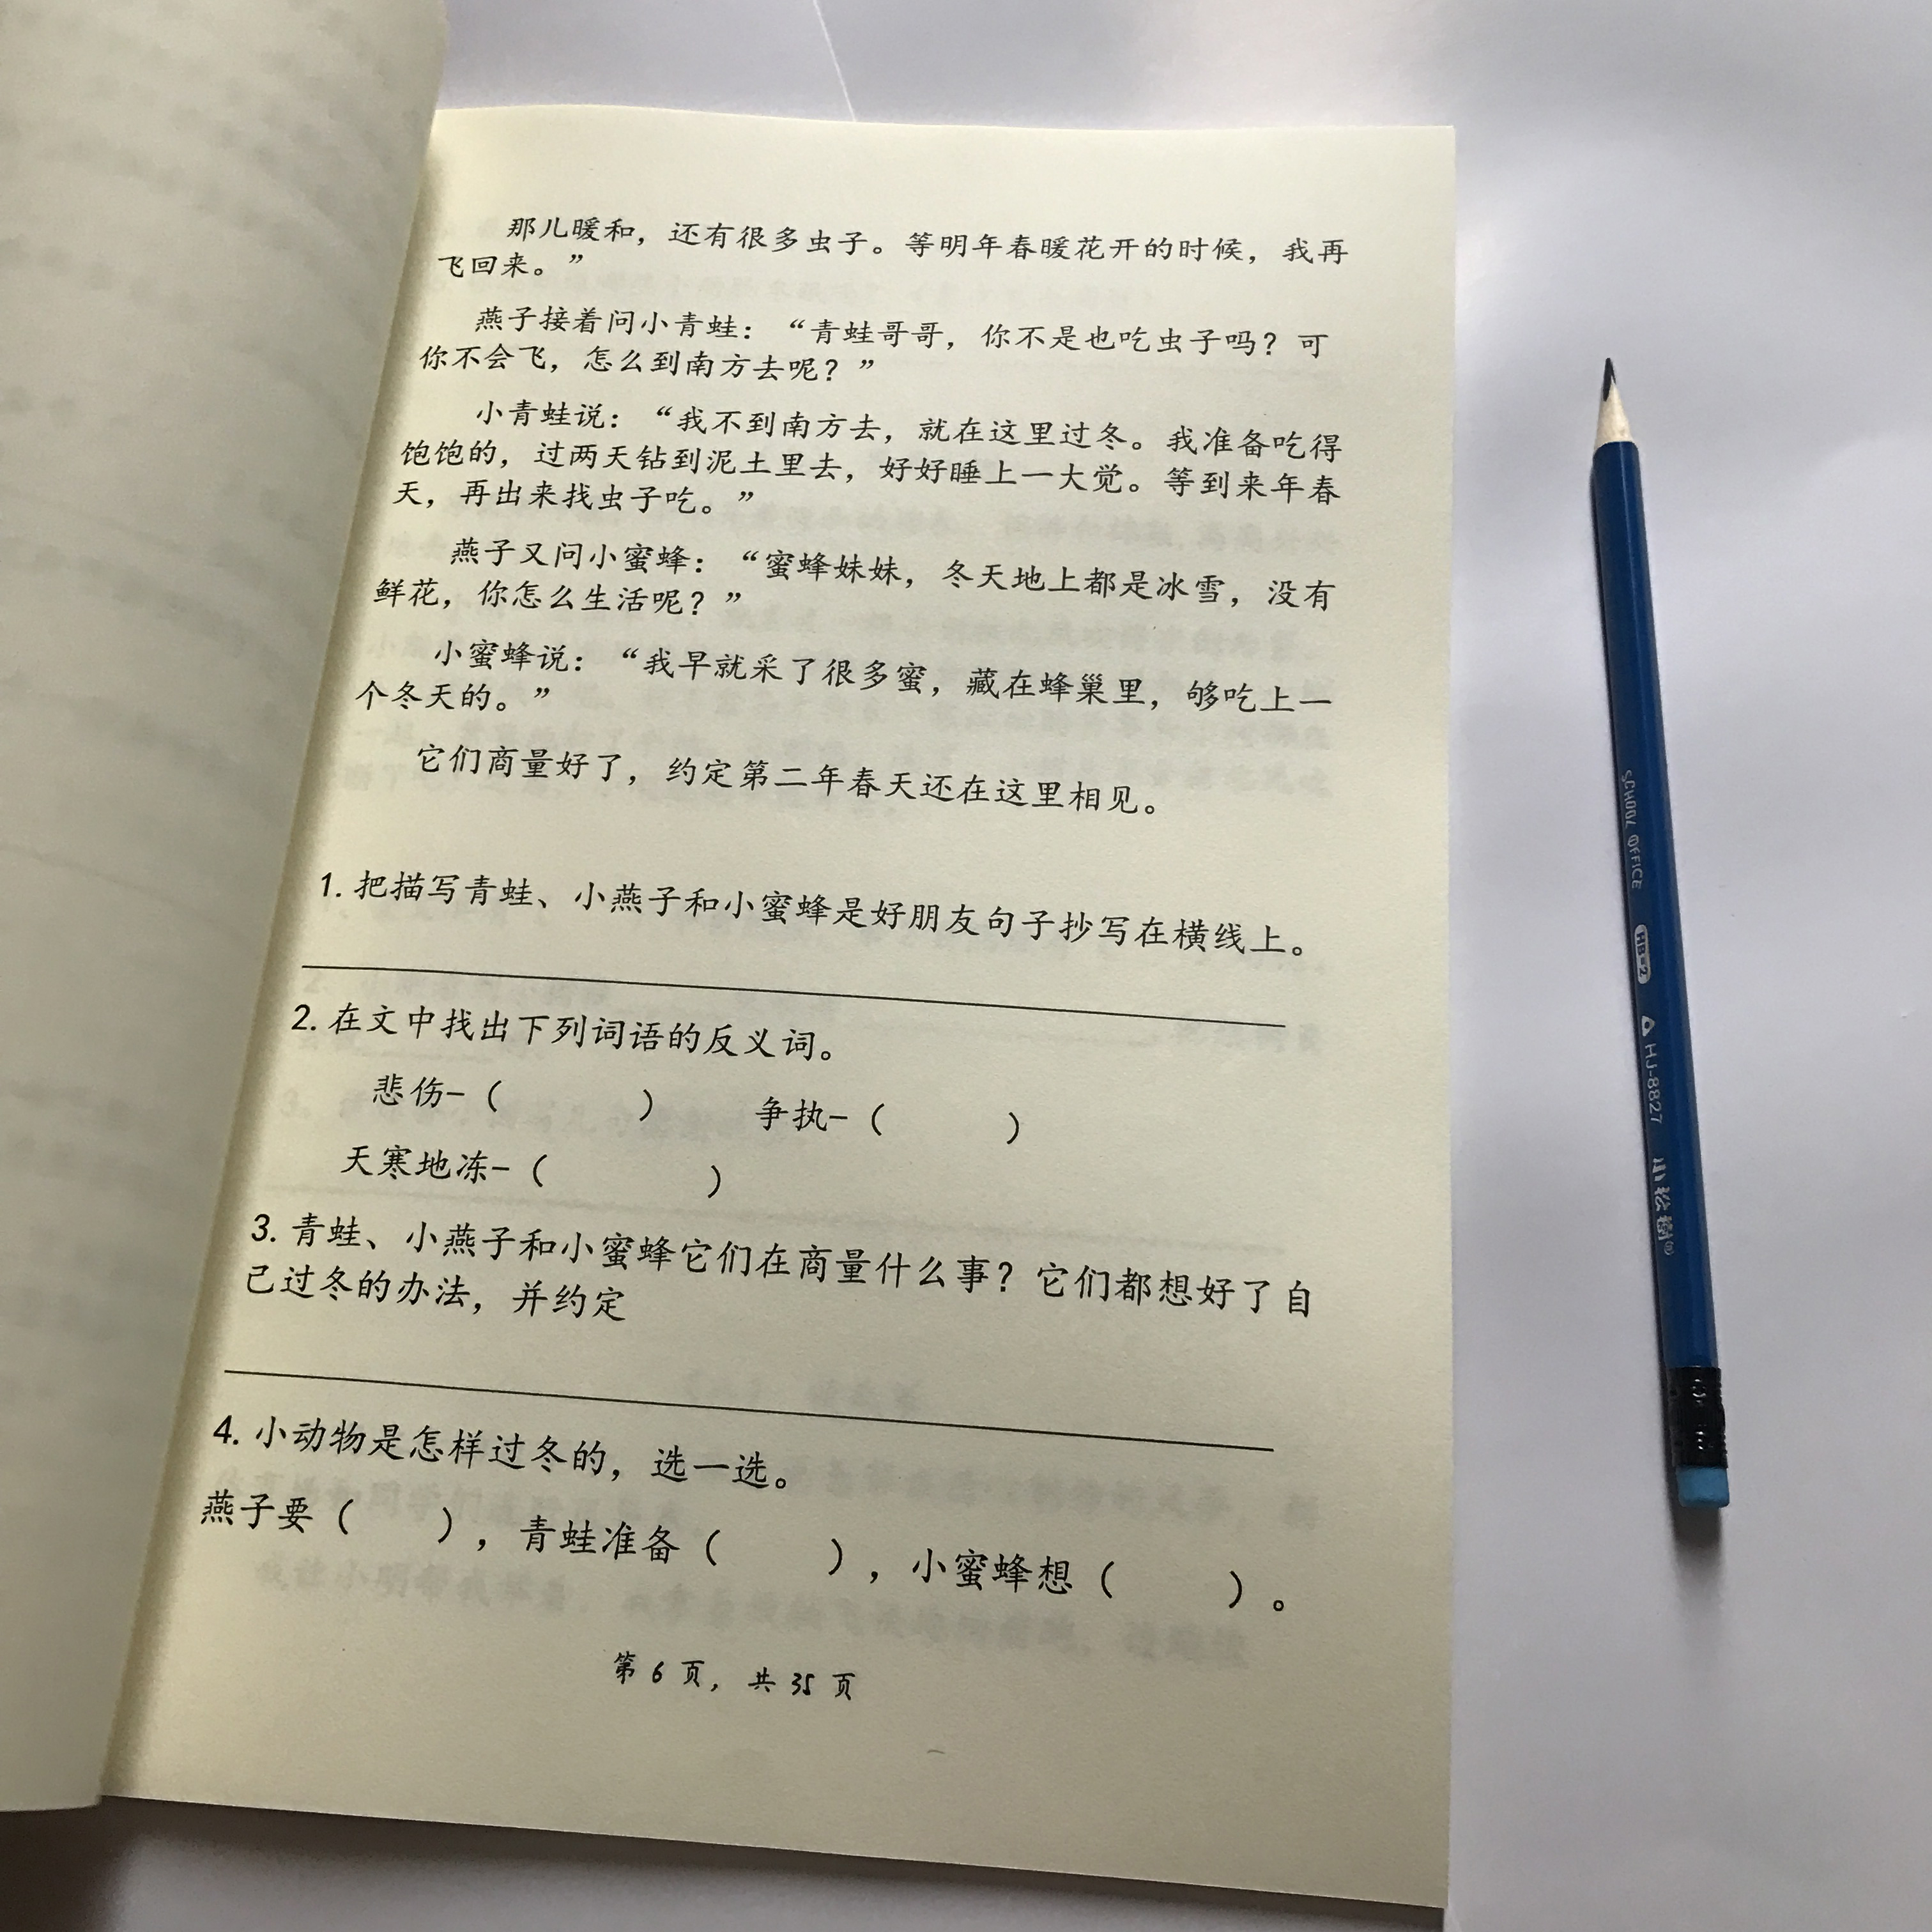 那儿暖和，还有很多虫子。等明年春暖花开的时候，我再
飞回来。”
燕子接着问小青蛙：“青蛙哥哥，你不是也吃虫子吗？可
你不会飞，怎么到南方去呢？”
小青蛙说：“我不到南方去，就在这里过冬。我准备吃得
饱饱的，过两天钻到泥土里去，好好睡上一大觉。等到来年春
天，再出来找虫子吃。”
燕子又问小蜜蜂：“蜜蜂妹妹，冬天地上都是冰雪，没有
鲜花，你怎么生活呢？”
小蜜蜂说：“我早就采了很多蜜，藏在蜂巢里，够吃上一
个冬天的。”
它们商量好了，约定第二年春天还在这里相见。
1. 把描写青蛙、小燕子和小蜜蜂是好朋友句子抄写在横线上。
2. 在文中找出下列词语的反义词。
悲伤-（ ） 争执-（ ）
天寒地冻-（ ）
3. 青蛙、小燕子和小蜜蜂它们在商量什么事？它们都想好了自
己过冬的办法，并约定
4. 小动物是怎样过冬的，选一选。
燕子要（ ），青蛙准备（ ），小蜜蜂想（ ）。
第 6 页，共 35 页
SCHOOL OFFICE HB=2 HJ-8827 小松树